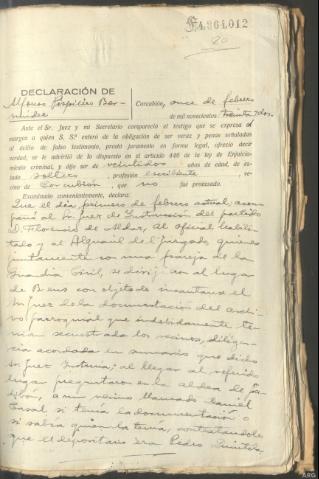 F4361,012
20
DECLARACIÓN DE
Alfonso Ber-
mudez
Corcubión, once de febrero
de mil novecientos treinta y dos.
Ante el Sr. Juez y mi Secretario compareció el testigo que se expresa al
margen a quien S. Sª enteró de la obligación de ser veraz y penas señaladas
al delito de falso testimonio, prestó juramento en forma legal, ofreció decir
verdad, se le advirtió de lo dispuesto en el artículo 446 de la ley de Enjuicia-
miento criminal, y dijo ser de veintidos años de edad, de es-
tado soltero, profesión escribiente, ve-
cino de Corcubión, que no fue procesado.
Examinado convenientemente, declara:
Que el día primero de febrero actual acom-
pañó al Sr Juez de Instrucción del partido
D. Florencio de Aldaz, al oficial habili-
tado y al Alguacil del Juzgado, quienes
juntamente con una pareja de la
Guardia Civil, se dirigieron al lugar
de Bens con objeto de incautarse el
Sr Juez de la documentación del archi-
vo parroquial que indebidamente te-
nian secuestrada los vecinos, diligen-
cia acordada en sumario que dicho
Sr Juez instruia; al llegar al referido
lugar preguntaron en la aldea de
a un vecino llamado Daniel
Casal si tenia la documentación o
si sabia quien la tenia, contestandole
que el depositario era Pedro